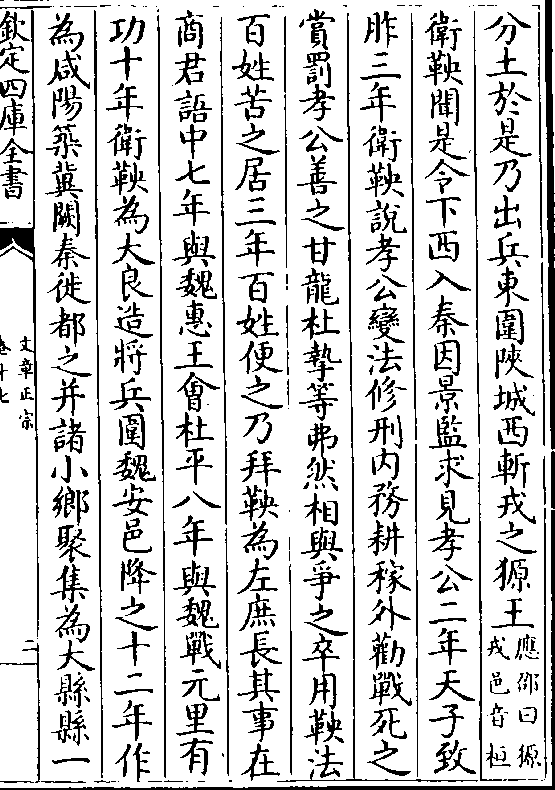 分土於是乃出兵東圍陜城西斬戎之獂王應邵曰獂戎邑音桓
衛鞅聞是令下西入秦因景監求見孝公二年天子致
胙三年衛鞅說孝公變法修刑内務耕稼外勸戰死之
賞罰孝公善之甘龍杜摯等弗然相與爭之卒用鞅法
百姓苦之居三年百姓便之乃拜鞅為左庶長其事在
商君語中七年與魏惠王會杜平八年與魏戰元里有
功十年衛鞅為大良造將兵圍魏安邑降之十二年作
為咸陽築冀闕秦徙都之并諸小鄉聚集為大縣縣一
欽定四庫全書
文章正宗
卷十七
二